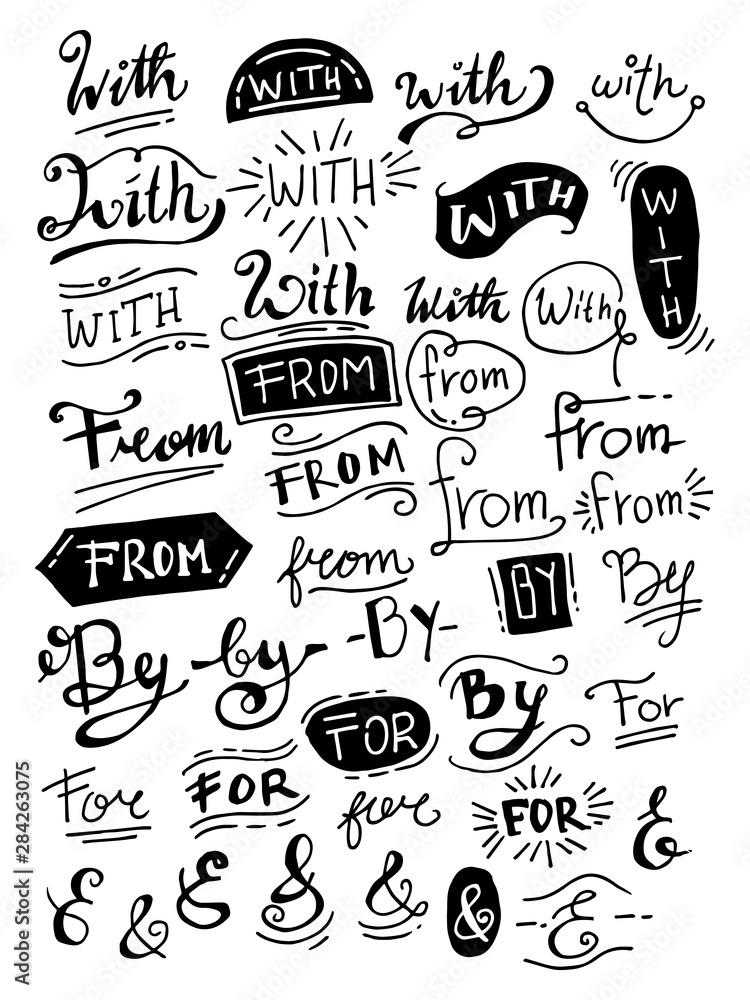 With WITH with with
With WITH WITH WITH
WITH With With With
FROM from
From from
FROM from from
FROM from
BY By
By -by- -BY-
By For
FOR
For FOR for FOR &
& & & & & & -&-
Adobe Stock | #284263075